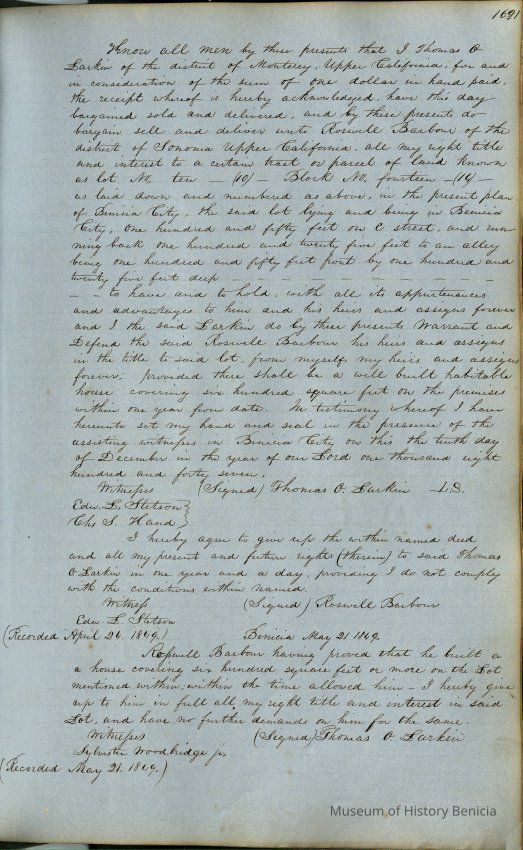 1691
Know all men by these presents that I Thomas O
Larkin of the district of Monterey, Upper California, for and
in consideration of the sum of one dollar in hand paid,
the receipt whereof is hereby acknowledged, have this day
bargained sold and delivered, and by these presents do
bargain sell and deliver unto Roswell Barbour of the
district of Sonoma Upper California, all my right title
and interest to a certain tract or parcel of land known
as lot No. ten - (10) - Block No. fourteen - (14) -
as laid down and numbered as above, in the present plan
of Benicia City, the said lot lying and being in Benicia
City, one hundred and fifty feet on C street, and run-
ning back one hundred and twenty five feet to an alley
being one hundred and fifty feet front by one hundred and
twenty five feet deep - - - - - - - - - -
- - to have and to hold, with all its appurtenances
and advantages to him and his heirs and assigns forever
and I the said Larkin do by these presents Warrant and
Defend the said Roswell Barbour his heirs and assigns
in the title to said lot, from myself my heirs and assigns
forever: provided there shall be a well built habitable
house covering six hundred square feet on the premises
within one year from date. In testimony whereof I have
hereunto set my hand and seal in the presence of the
assisting witnesses in Benicia City on this the tenth day
of December in the year of our Lord one thousand eight
hundred and forty seven.
Witnesses (Signed) Thomas O. Larkin L.S.
Edw. L. Stetson }
Chs S. Hand }
I hereby agree to give up the within named deed
and all my present and future right (therein) to said Thomas
O Larkin in one year and a day, providing I do not comply
with the conditions within named.
Witness (Signed) Roswell Barbour
Edw. L. Stetson
(Recorded April 26. 1849.) Benicia May 21 1849.
Roswell Barbour having proved that he built a
a house covering six hundred square feet or more on the Lot
mentioned within, within the time allowed him - I hereby give
up to him in full all my right title and interest in said
Lot, and have no further demands on him for the same.
Witnesses (Signed) Thomas O Larkin
Sylvester Woodbridge jr.
(Recorded May 21. 1849.)
Museum of History Benicia